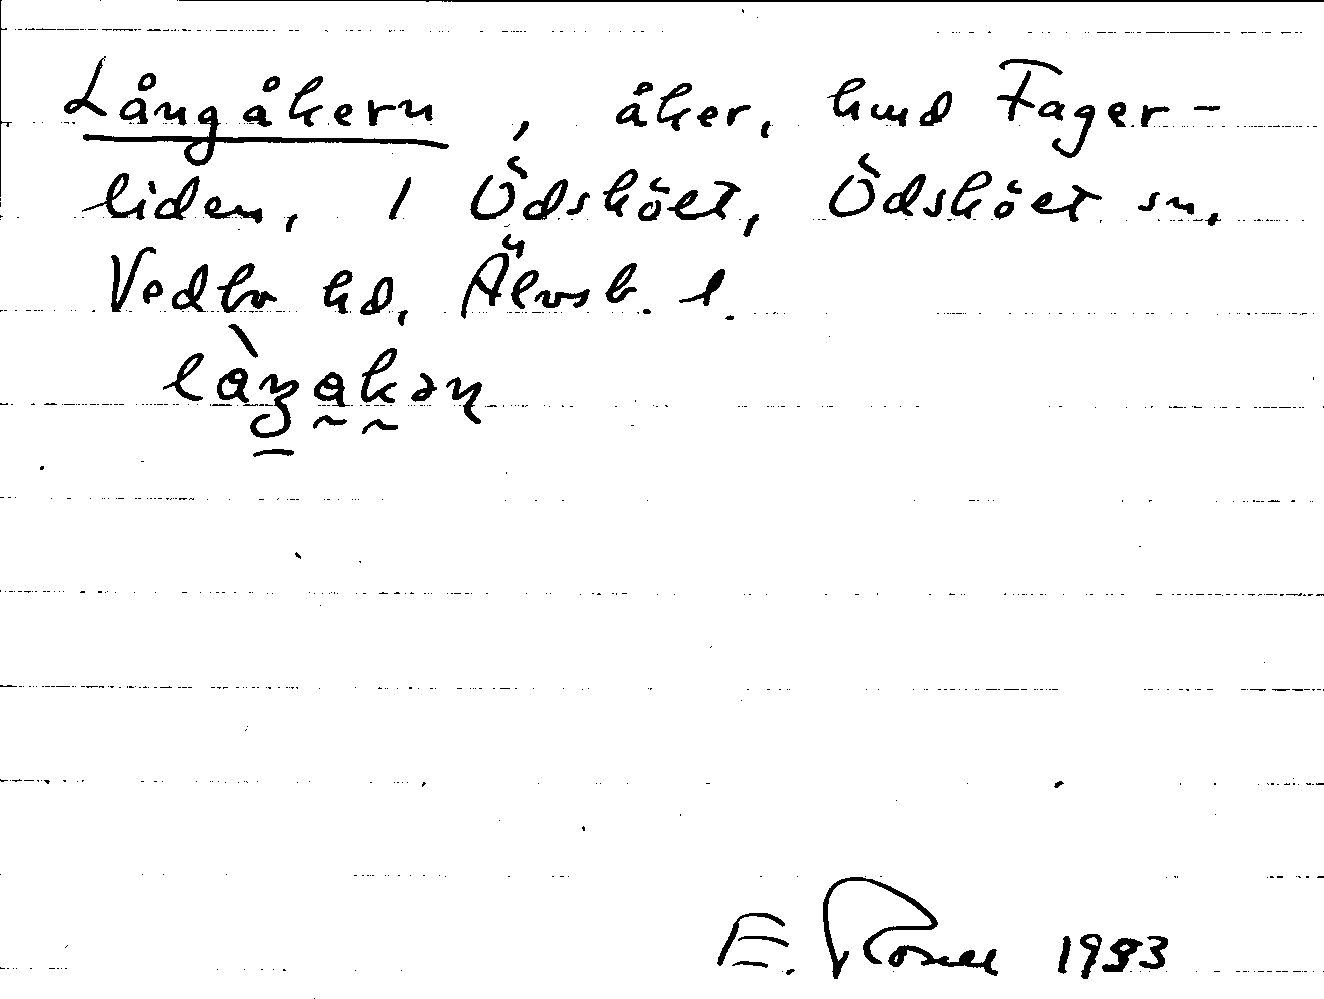 Långåkern, åker, hmd Fager-
liden, 1 Ödsköet, Ödsköet sn,
Vedbo hd, Älvsb. l.
E. Rosell 1933